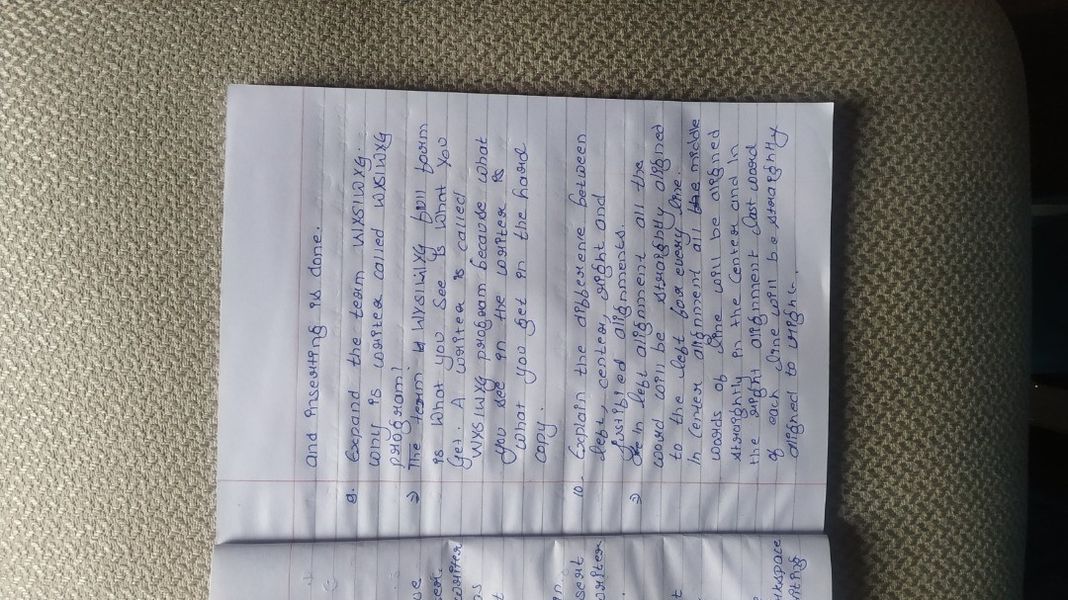 and inserting is done.
9. Expand the term WXSIWXG.
why is writer called WXSIWXG
program?
⇒ The term is WXSIWIXG full form
is What you See Is What You
Get. A writer is called
WXSIWXG program because what
you see in the writer is
what you get in the hard
copy.
10. Explain the differene between
left, center, right and
Justified alignments.
⇒ In left alignment all the
word will be straightly aligned
to the left for every line.
In center alignment all the middle
words of line will be aligned
straightly in the center and in
the right alignment last word
of each line will be straightly
aligned to right.
use
writer
as
t
in.
sert
writer
t
rkspace
iting